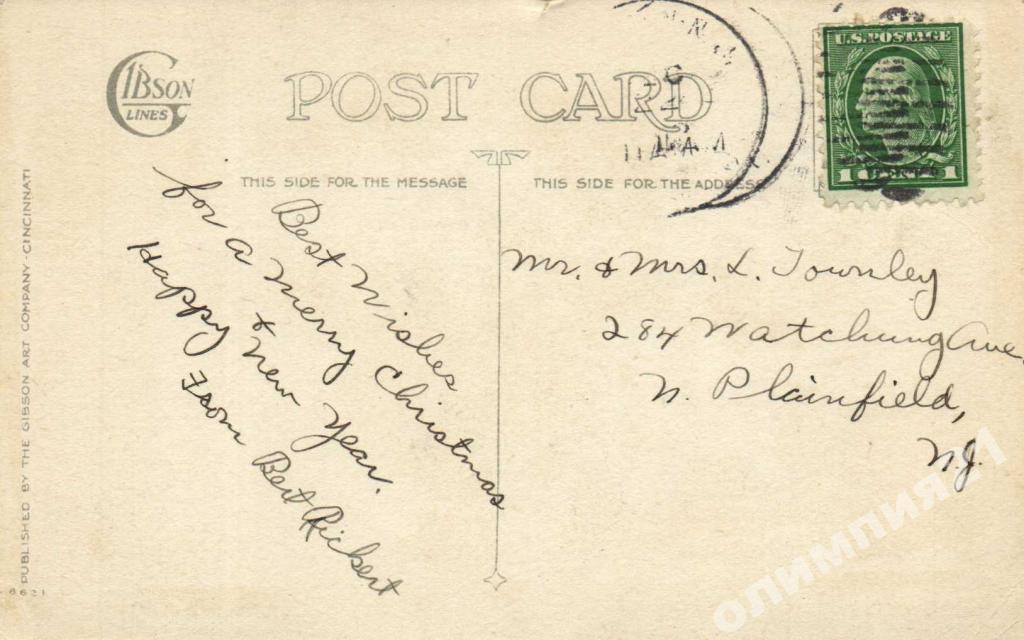 GIBSON
LINES
POST CARD
U.S. POSTAGE
1 CENT 1
THIS SIDE FOR THE MESSAGE
THIS SIDE FOR THE ADDRESS
Best Wishes
for a Merry Christmas
& New Year.
Happy
From Bert Rickert
Mr. & Mrs. L. Townley
284 Watchung Ave.
N. Plainfield,
N.J.
PUBLISHED BY THE GIBSON ART COMPANY - CINCINNATI
6621
олимпия21